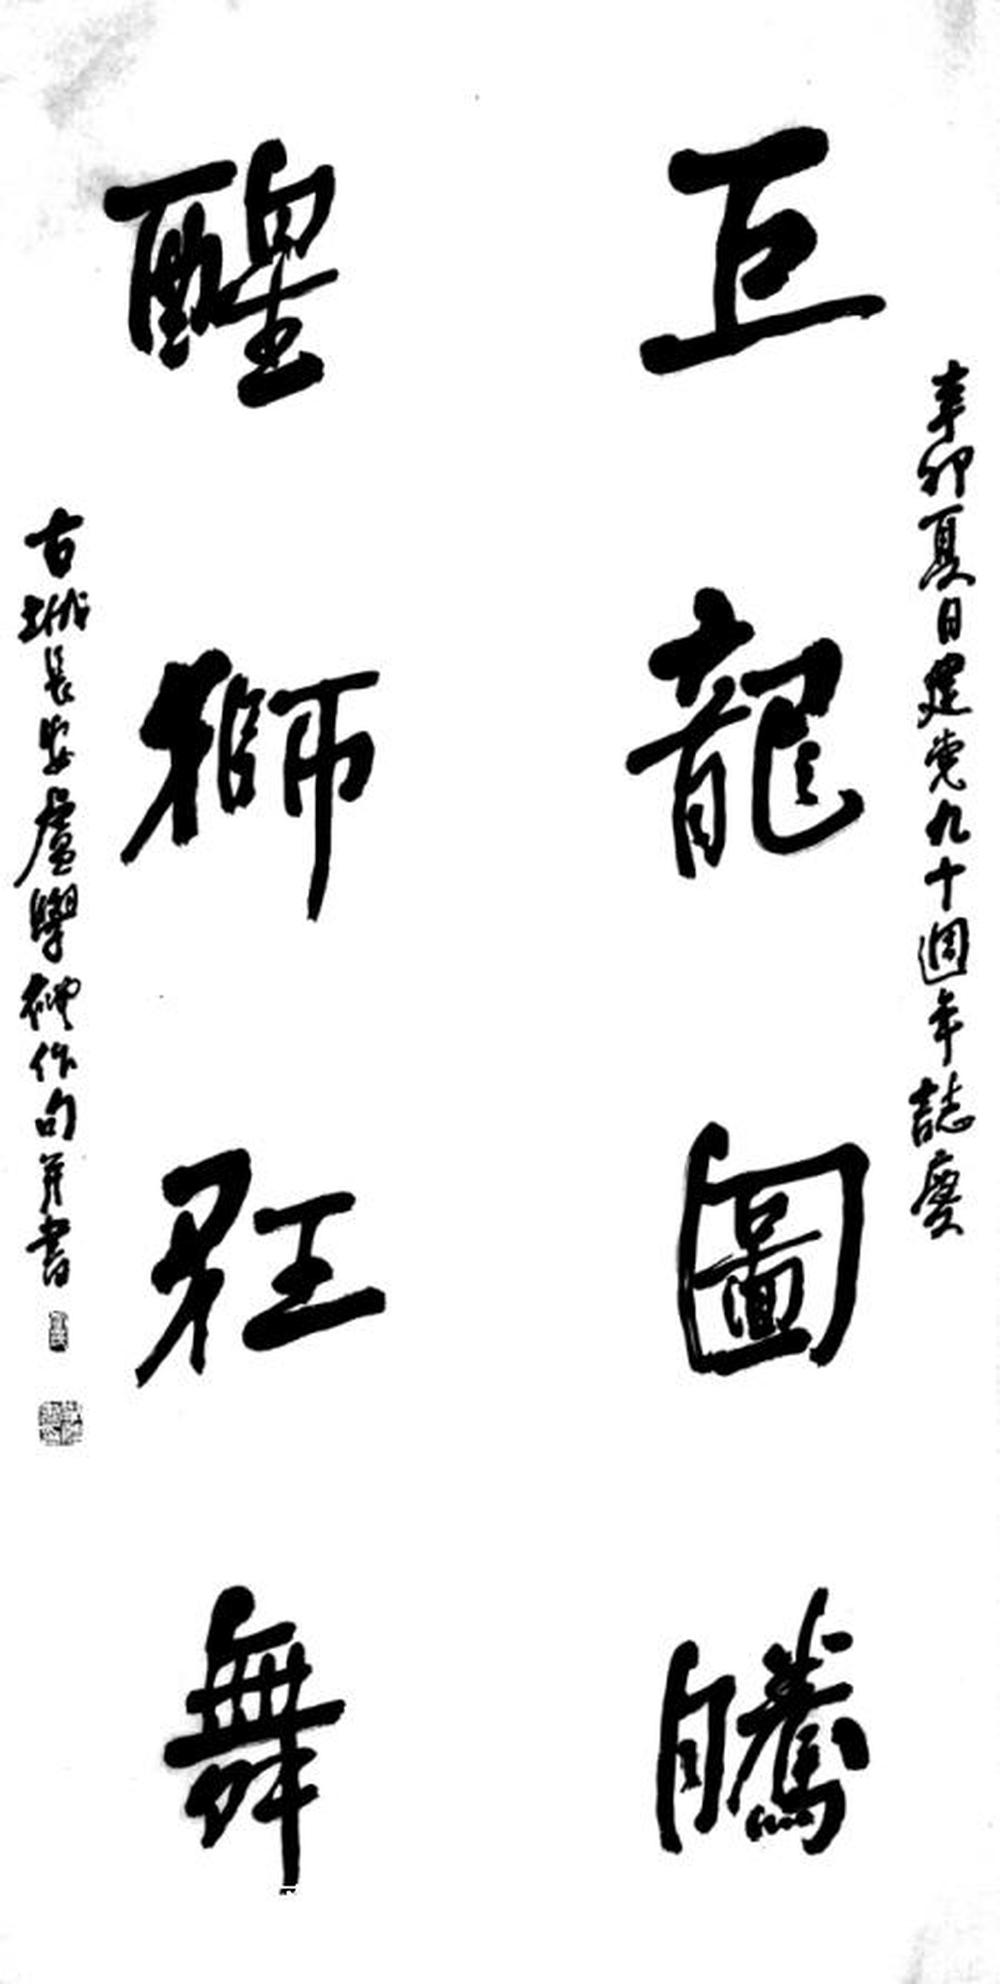 辛卯夏日建党九十週年誌慶
巨龍圖騰
醒獅狂舞
古城長安盧學禮作句并書